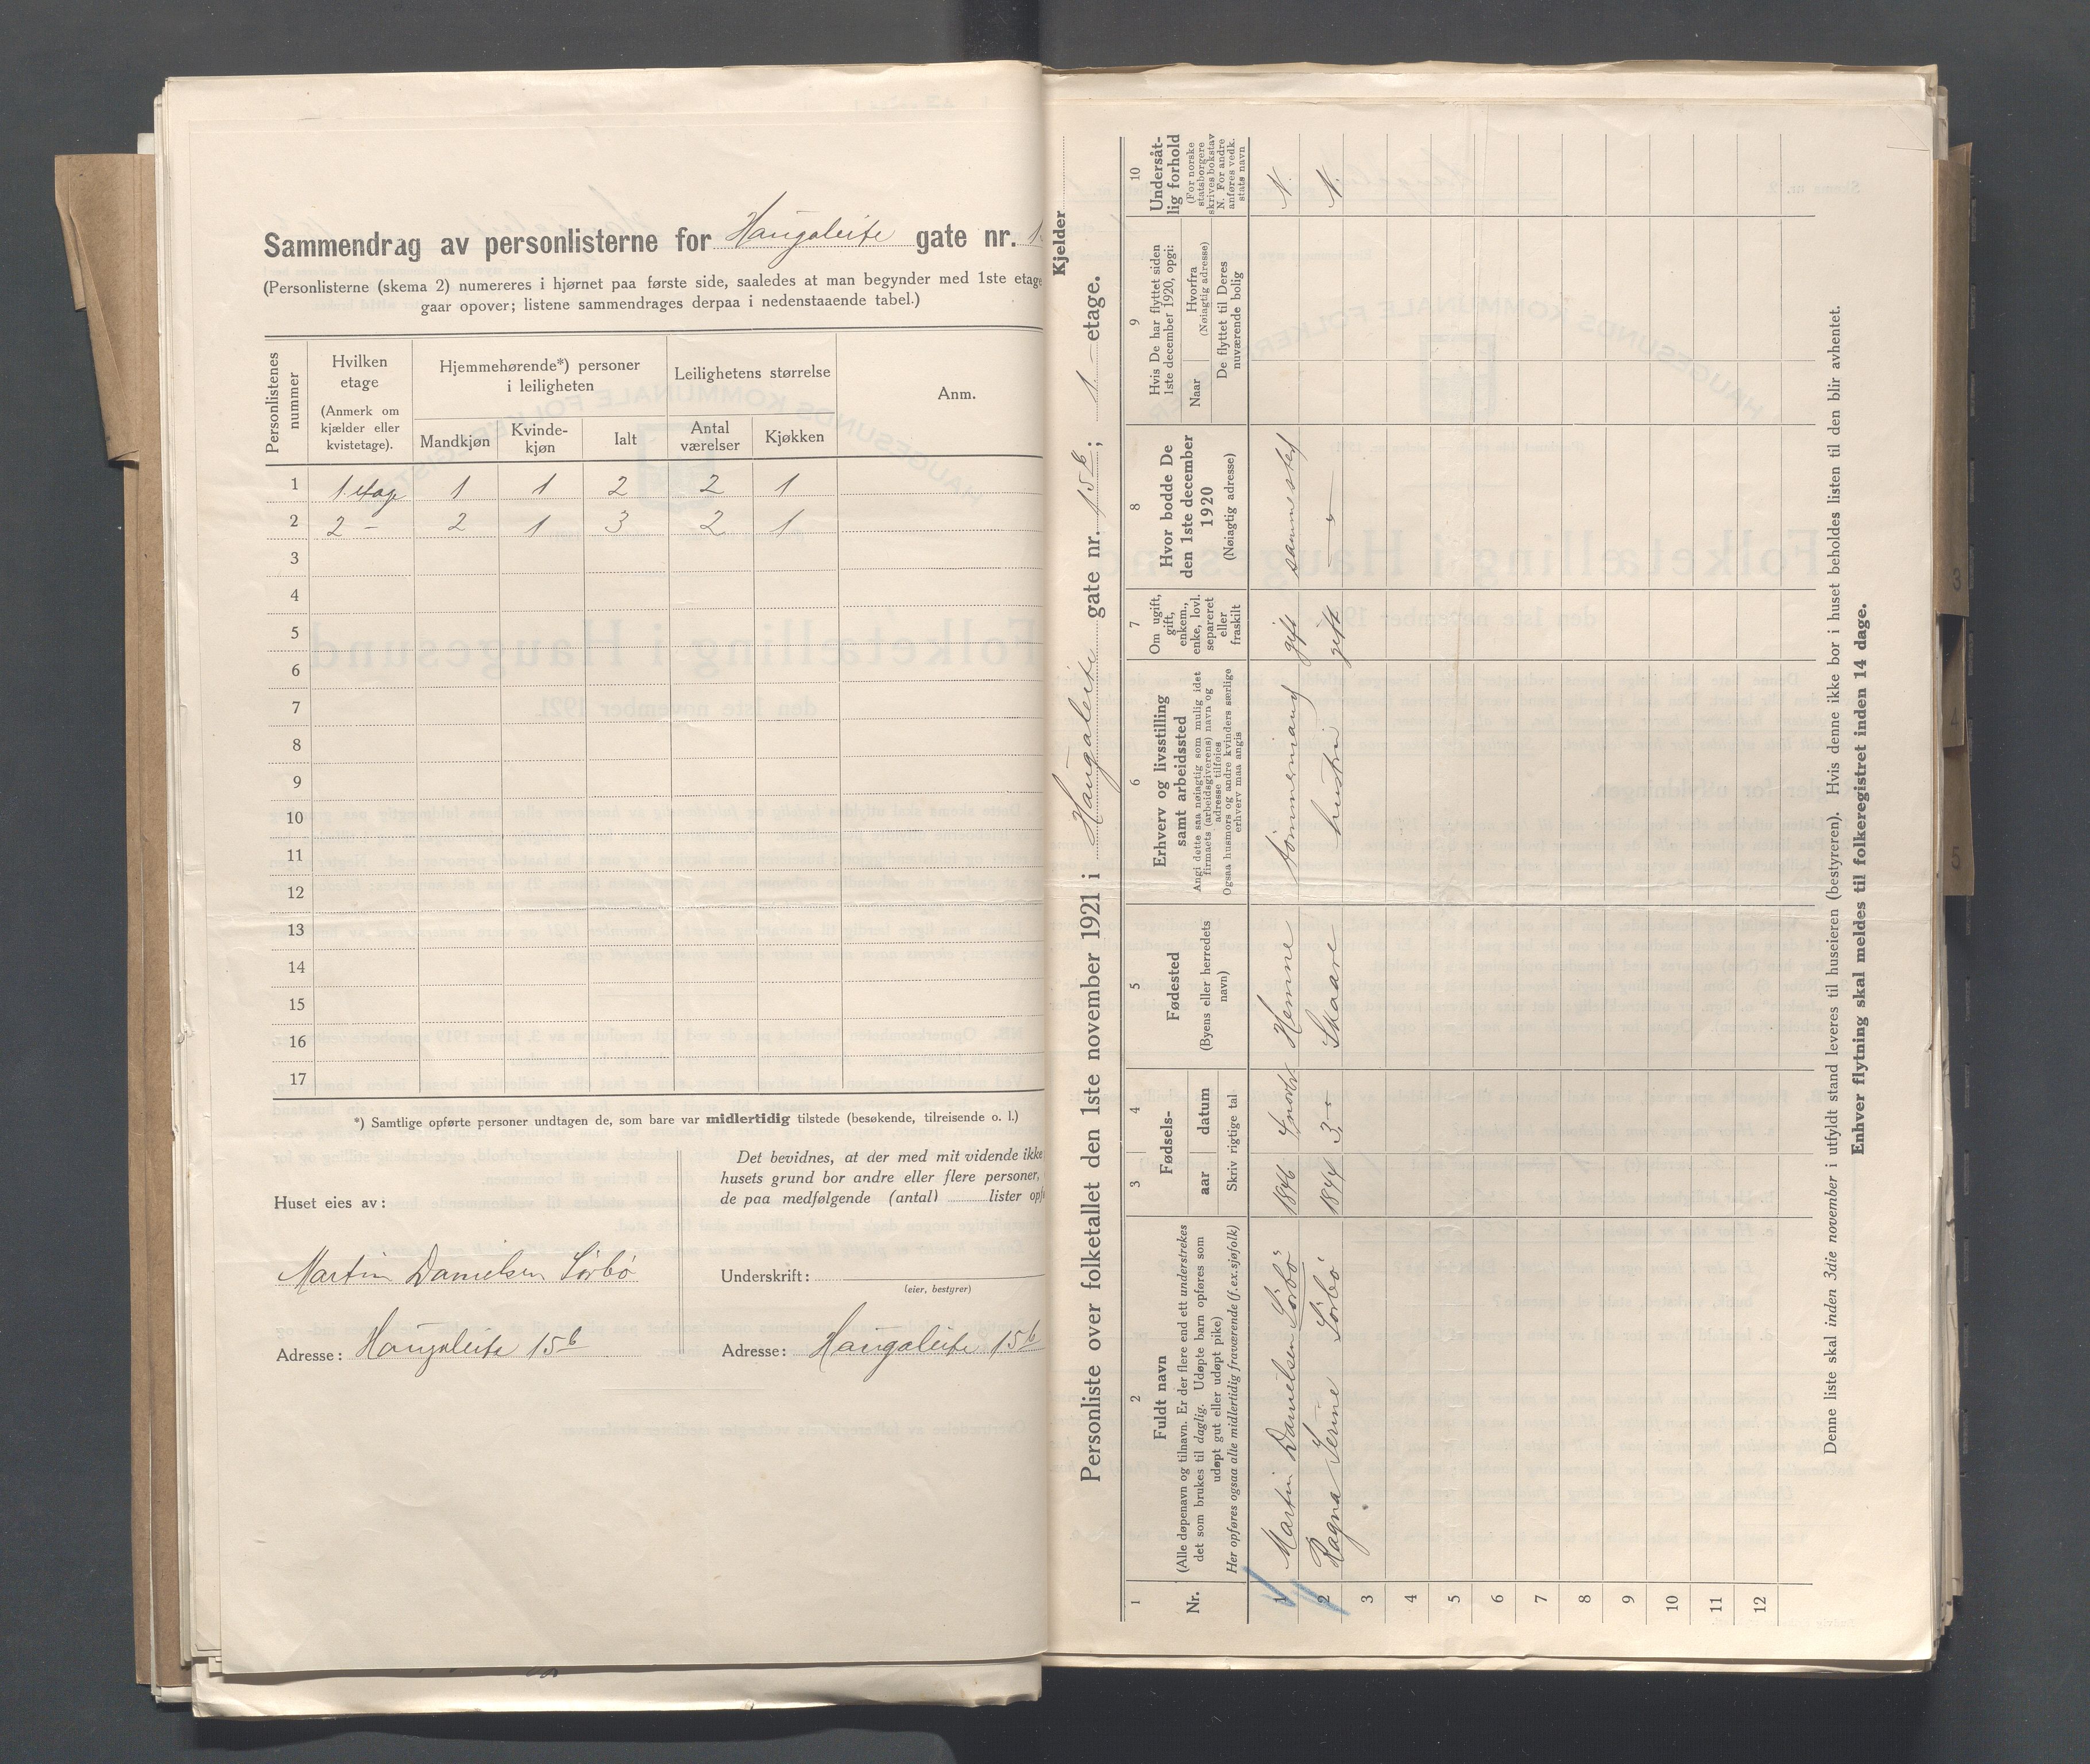 Sammendrag av personlisterne for Haugaleite gate nr. 1
(Personlisterne (skema 2) numereres i hjørnet paa første side, saaledes at man begynder med 1ste etage
gaar opover; listene sammendrages derpaa i nedenstaaende tabel.)
Personlistenes nummer
Hvilken etage
(Anmerk om kjælder eller kvistetage).
Hjemmehørende*) personer i leiligheten
Leilighetens størrelse
Anm.
Mandkjøn Kvinde-kjøn Ialt Antal værelser Kjøkken
1 1 etag 1 1 2 2 1
2 2 - 2 1 3 2 1
3
4
5
6
7
8
9
10
11
12
13
14
15
16
17
*) Samtlige opførte personer undtagen de, som bare var midlertidig tilstede (besøkende, tilreisende o. l.)
Huset eies av:
Martin Danielsen Sørbø
Adresse: Haugaleite 15b
Det bevidnes, at der med mit vidende ikke
husets grund bor andre eller flere personer,
de paa medfølgende (antal) lister opfø
Underskrift:
(eier, bestyrer)
Adresse: Haugaleite 15b
Kjelder
Personliste over folketallet den 1ste november 1921 i Haugaleite gate nr. 15b; 1. etage.
1 2 3 4 5 6 7 8 9 10
Nr.
Fuldt navn
(Alle døpenavn og tilnavn. Er der flere end ett understrekes
det som brukes til daglig. Udøpte barn opføres som
udøpt gut eller udøpt pike)
Her opføres ogsaa alle midlertidig fraværende (f. ex. sjøfolk)
Fødsels-
aar datum
Skriv rigtige tal
Fødested
(Byens eller herredets navn)
Erhverv og livsstilling
samt arbeidssted
Angi dette saa nøiagtig som mulig idet
firmaets (arbeidsgiverens) navn og
adresse tilføies
Ogsaa husmors og andre kvinders særlige
erhverv maa angis
Om ugift, gift, enkem., enke, lovl. separeret eller fraskilt
Hvor bodde De
den 1ste december
1920
(Nøiagtig adresse)
Hvis De har flyttet siden
1ste december 1920, opgi:
Naar
Hvorfra
(Nøiagtig adresse)
De flyttet til Deres
nuværende bolig
Undersåt-
lig forhold
(For norske
statsborgere
skrives bokstav
N. For andre
anføres vedk.
stats navn
1 Martin Danielsen Sørbø 1846 4 novbr Hemne tömmermand gift sammested N.
2 Ragna Serine Sørbø 1844 3 - Skaare hustru gift - " - N.
3
4
5
6
7
8
9
10
11
12
Denne liste skal inden 3die november i utfyldt stand leveres til huseieren (bestyreren). Hvis denne ikke bor i huset beholdes listen til den blir avhentet.
Enhver flytning skal meldes til folkeregistret inden 14 dage.